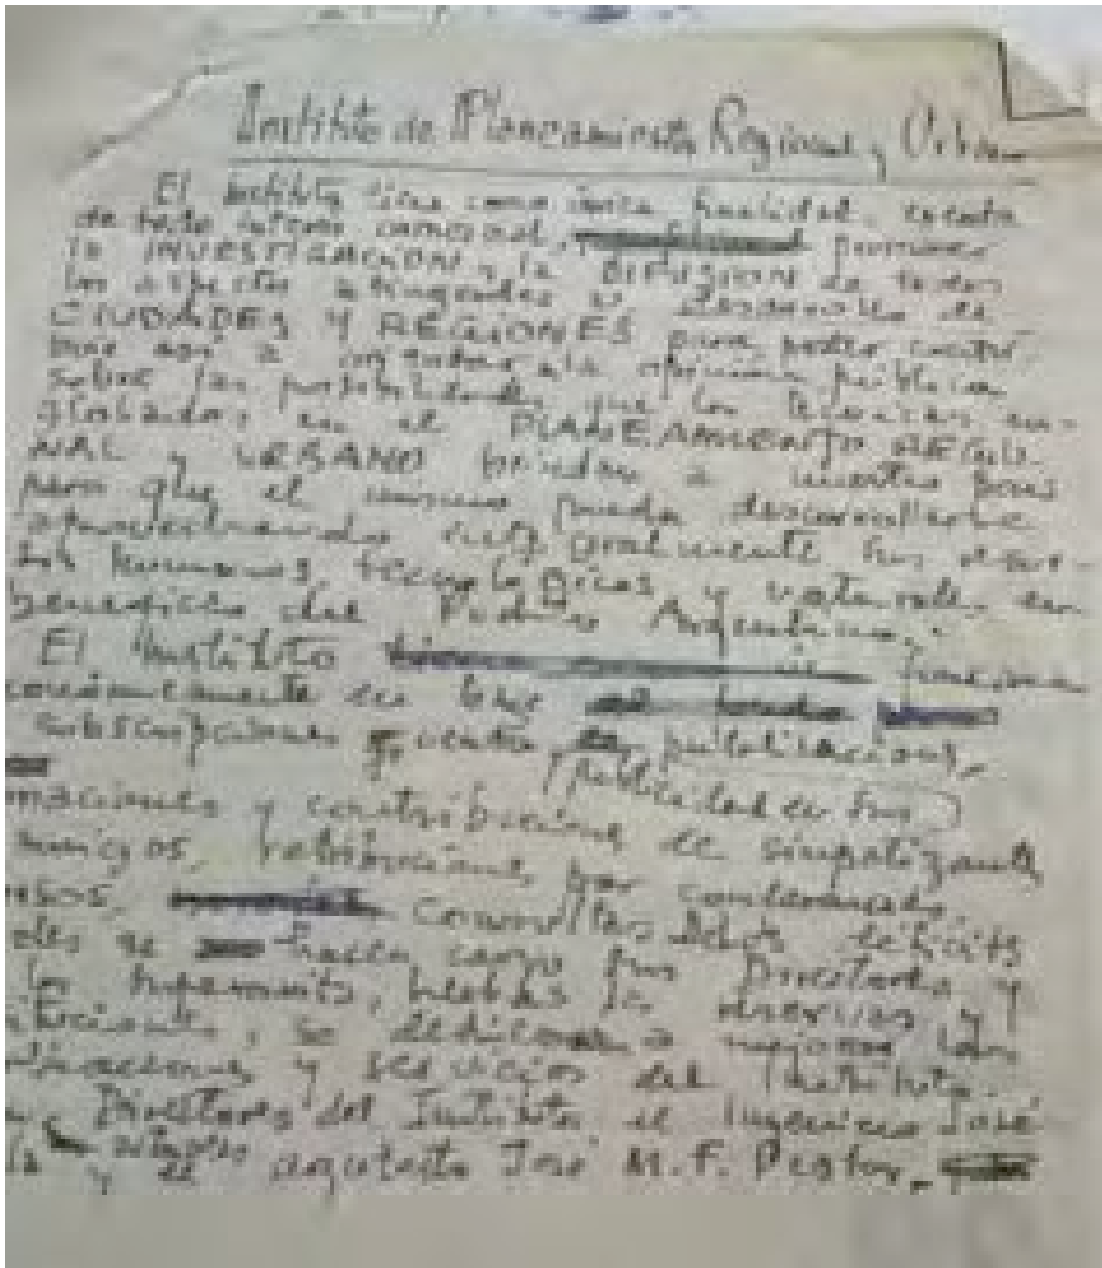 Instituto de Planeamiento Regional y Urbano
El Instituto tiene como única finalidad, exenta
de todo interés comercial, promover
la INVESTIGACION y la DIFUSION de todos
los aspectos atingentes al desarrollo de
CIUDADES Y REGIONES para poder contri-
buir así a a la opinión pública
sobre las posibilidades que los técnicos en-
globados en el PLANEAMIENTO REGIO-
NAL y URBANO brindan a nuestro país
para que el mismo pueda desarrollarse
aprovechando integralmente sus recur-
sos humanos, tecnológicos y naturales en
beneficio del Pueblo Argentino.
El Instituto funciona
económicamente en base
subscripciones y venta de publicaciones,
publicidad en sus
y contribuciones de simpatizantes
amigos, retribuciones por conferencias,
consultas. Los déficits
se hacen cargo sus Directores y
los superavits, hechas la reservas y
, se dedican a mejorar las
publicaciones y servicios del Instituto.
Directores del Instituto el Ingeniero José
y el arquitecto José M. F. Pastor.